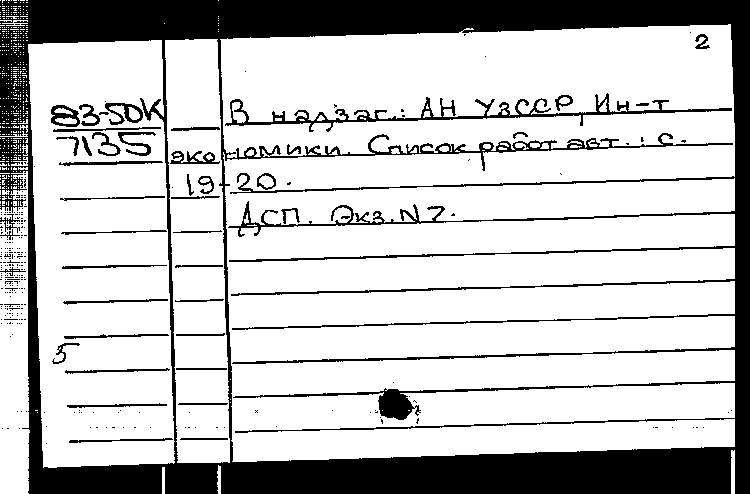 2
83-50К
7135
В надзаг.: АН УзССР, Ин-т
экономики. Список работ авт.: с.
19-20.
ДСП. Экз. N 7.
5